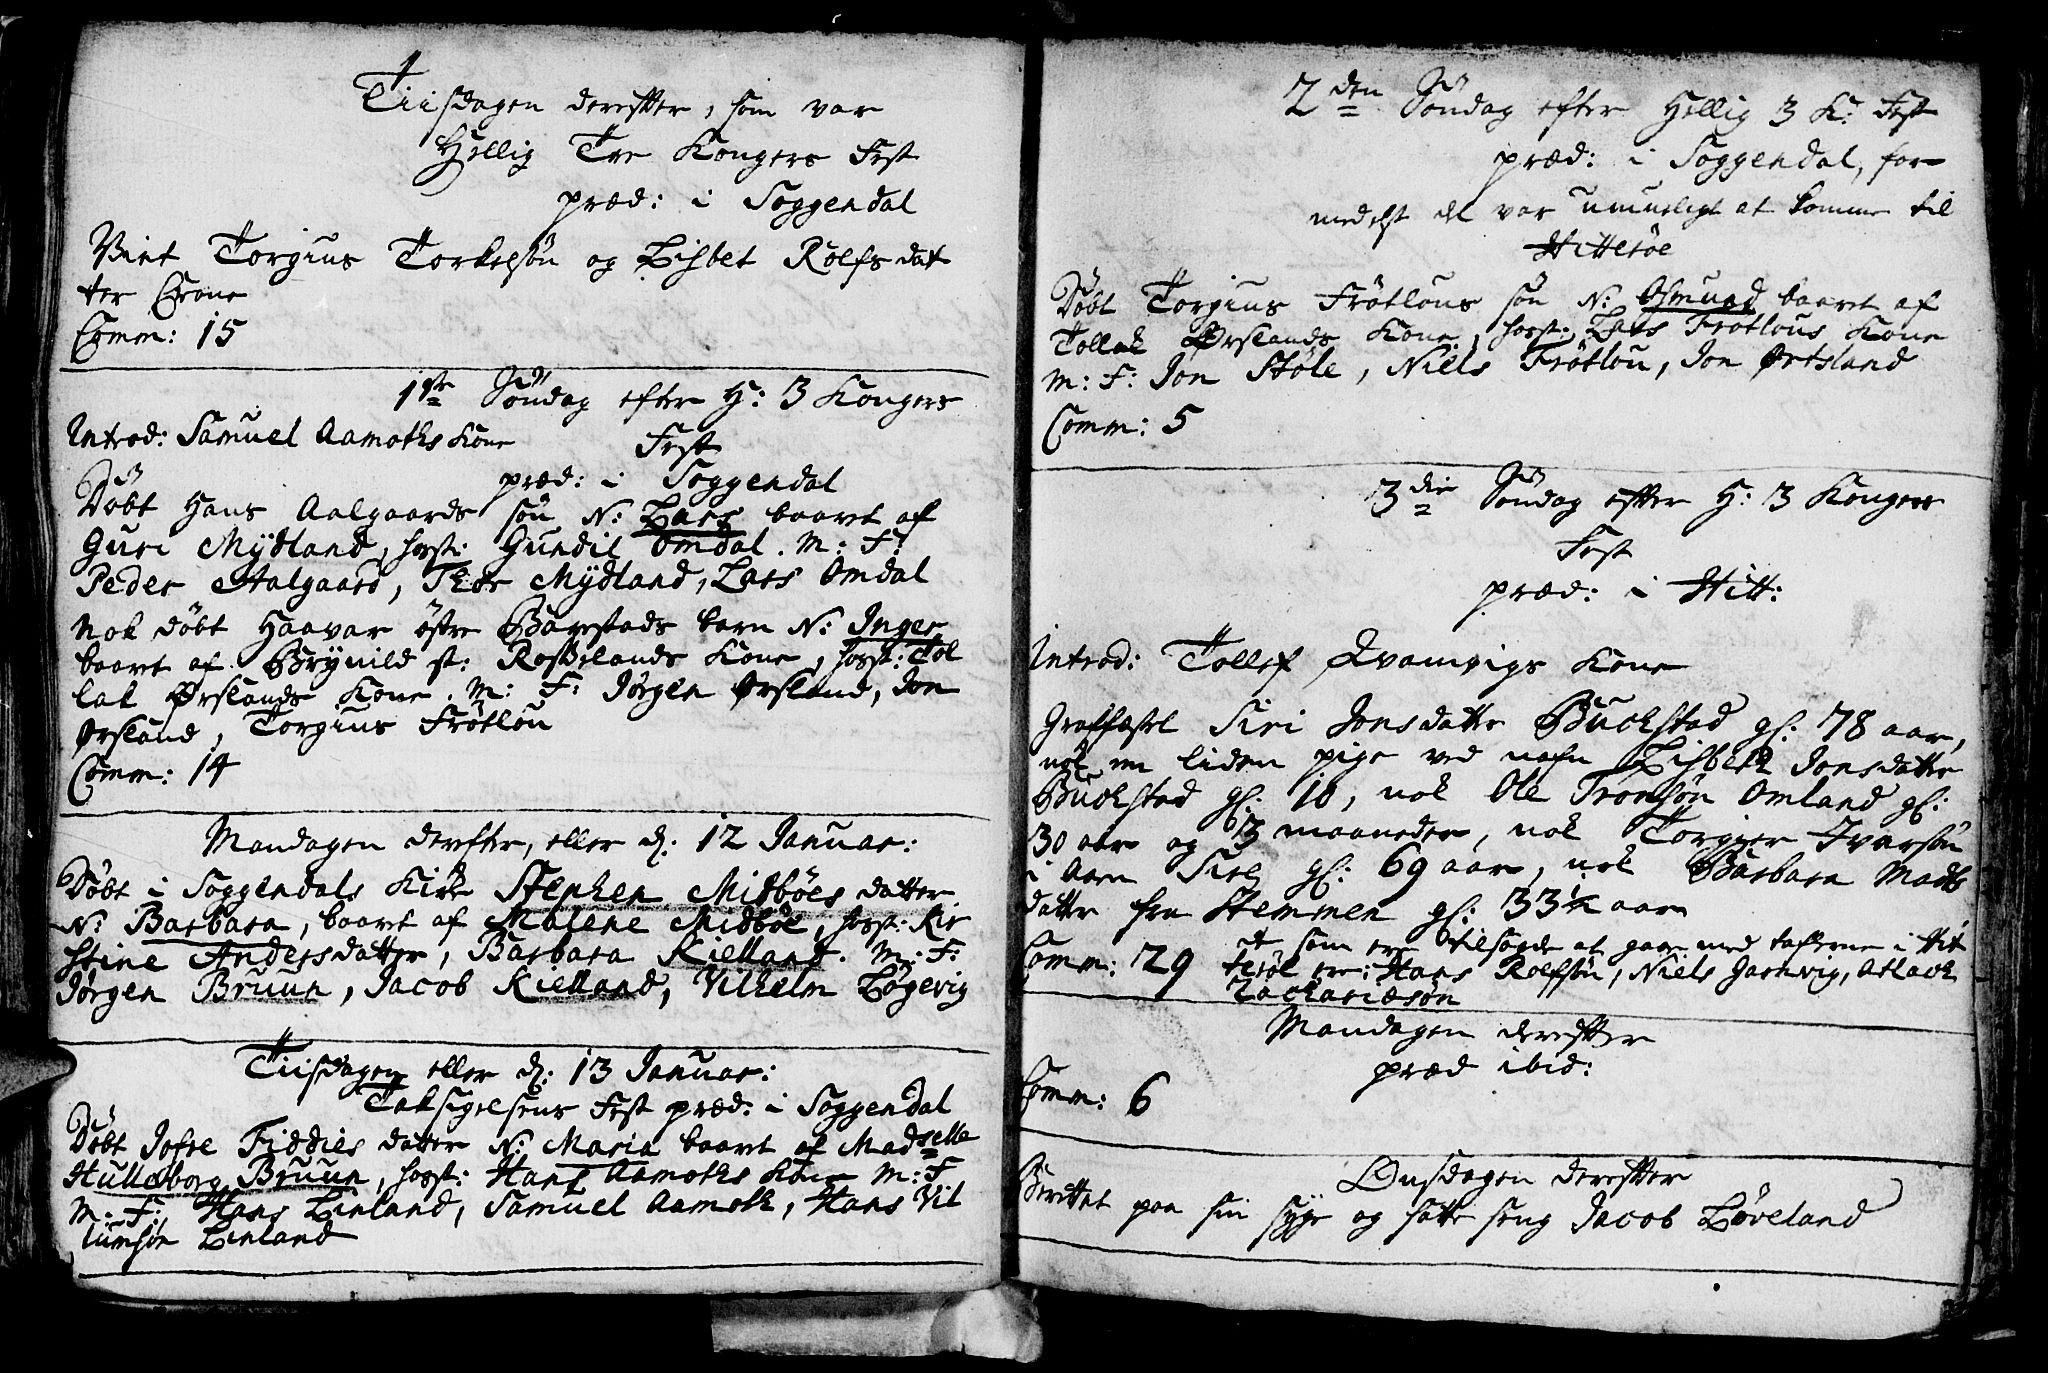 Tiisdagen derefter, som var
Hellig Tre Kongers Fest
præd: i Soggendal
Viet Torgius Torkelsøn og Lisbet Rolfsdat
ter Eeane
Comm: 15
1ste Søndag efter H: 3 Kongers
Fest
Introd: Samuel Aamoths Kone
præd: i Soggendal
Døbt Hans Aalgaards søn N: Lars baaret af
Guri Mydland, host: Gundil Omdal. M: F:
Peder Aalgaard, Thor Mydland, Lars Omdal
Nok døbt Haavar østre Barestads barn N: Inger
baaret af Brynild st: Rosselands Kone, host: Tol
lak Ørslands Kone. M: F: Jørgen Ørsland, Jon
Ørsland, Torgius Frøtlou
Comm: 14
Mandagen derefter, eller d: 12 Januar:
Døbt i Soggendals Kirke Stenhen Midbøes datter
N: Barbara, baaret af Malene Midbøe, host: Kir
stine Andersdatter, Barbara Kielland. M: F:
Jørgen Bruun, Jacob Kielland, Vilhelm Løgevig
Tiisdagen eller d: 13 Januar:
Taksigelsens Fest præd: i Soggendal
Døbt Jofre Fiddies datter N: Maria baaret af Madselle
Hulleborg Bruun, host: Hans Aamoths Kone M: F
M: F: Hans Linland, Samuel Aamoth, Hans Vil
lumsøn Linland
2den Søndag efter Hellig 3 K: Fest
præd: i Soggendal, for
medelst det var umueligt at komme til
Hitterøe
Døbt Torgius Frøtlous søn N: Osmund baaret af
Tollak Ørslands Kone, host: Lars Frøtlous Kone
M: F: Jon Støle, Niels Frøtlou, Jon Ørtsland
Comm: 5
3die Søndag efter H: 3 Kongers
Fest
præd: i Hitt:
Introd: Tollef Qvamvigs Kone
Graffæstet Siri Jonsdatter Buckstad gl: 78 aar,
nok en liden pige ved nafn Lisbeth Jonsdatter
Buckstad gl: 10, nok Ole Tronsøn Omland gl:
30 aar og 3 maaneder, nok Torgier Ivarsøn
i Aaen Sire gl: 69 aar, nok Barbara Mads
datter fra Stemmen gl: 33½ aar
Comm: 29 som ere tilsagde at gaae med taflerne i Hit
terøe ere: Hans Rolfsøn, Niels Jasvig, Atlack
Zachariæsøn
Mandagen derefter
præd ibid:
Comm: 6
Onsdagen derefter
Berettet paa sin syge og sotte seng Jacob Løveland